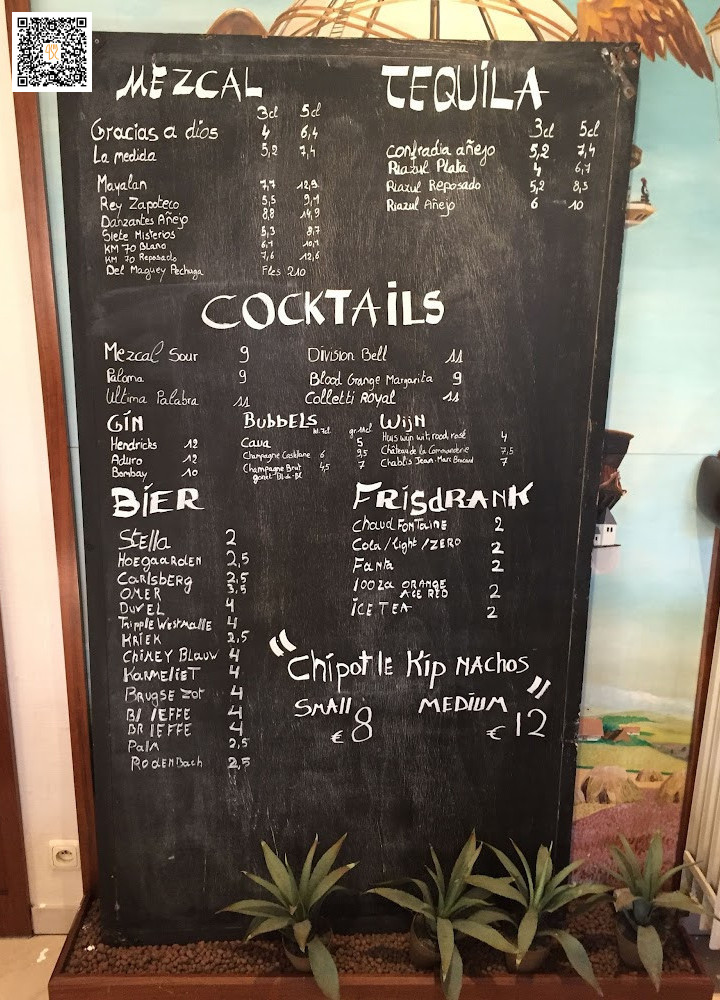 MEZCAL
3cl 5cl
Gracias a dios 4 6,4
La medida 5,2 7,4
Mayalan 7,7 12,9
Rey Zapoteco 5,5 9,1
Danzantes Añejo 8,8 14,9
Siete Misterios 5,3 8,7
KM 70 Blano 6,1 10,1
KM 70 Reposado 7,6 12,6
Del Maguey Pechuga Fles 210
TEQUILA
3cl 5cl
Confradia añejo 5,2 7,4
Riazul Plata 4 6,7
Riazul Reposado 5,2 8,5
Riazul Añejo 6 10
COCKTAILS
Mezcal Sour 9
Paloma 9
Ultima Palabra 11
Division Bell 11
Blood Orange Margarita 9
Colletti Royal 11
GIN
Hendricks 12
Aduro 12
Bombay 10
BUBBELS
Cava 5
Champagne Castelane 6 9,5
Champagne Brut 4,5 7
WIJN
Huis wijn wit, rood, rosé 4
Château de la Commanderie 7,5
Chablis Jean-Marc 7
BIER
Stella 2
HOEGAARDEN 2,5
CARLSBERG 2,5
OMER 3,5
DUVEL 4
TRIPPLE WESTMALLE 4
KRIEK 2,5
CHIMEY BLAUW 4
KARMELIET 4
BRUGSE ZOT 4
Bl lEFFE 4
BR lEFFE 4
Palm 2,5
RODENBACH 2,5
FRISdRANK
Chaud FONTaiNE 2
Cola/light/ZERO 2
Fanta 2
looza ORANGE
ACE RED 2
iCE TEA 2
"Chipotle Kip NACHOS"
SMAll MEDIUM
€ 8 € 12